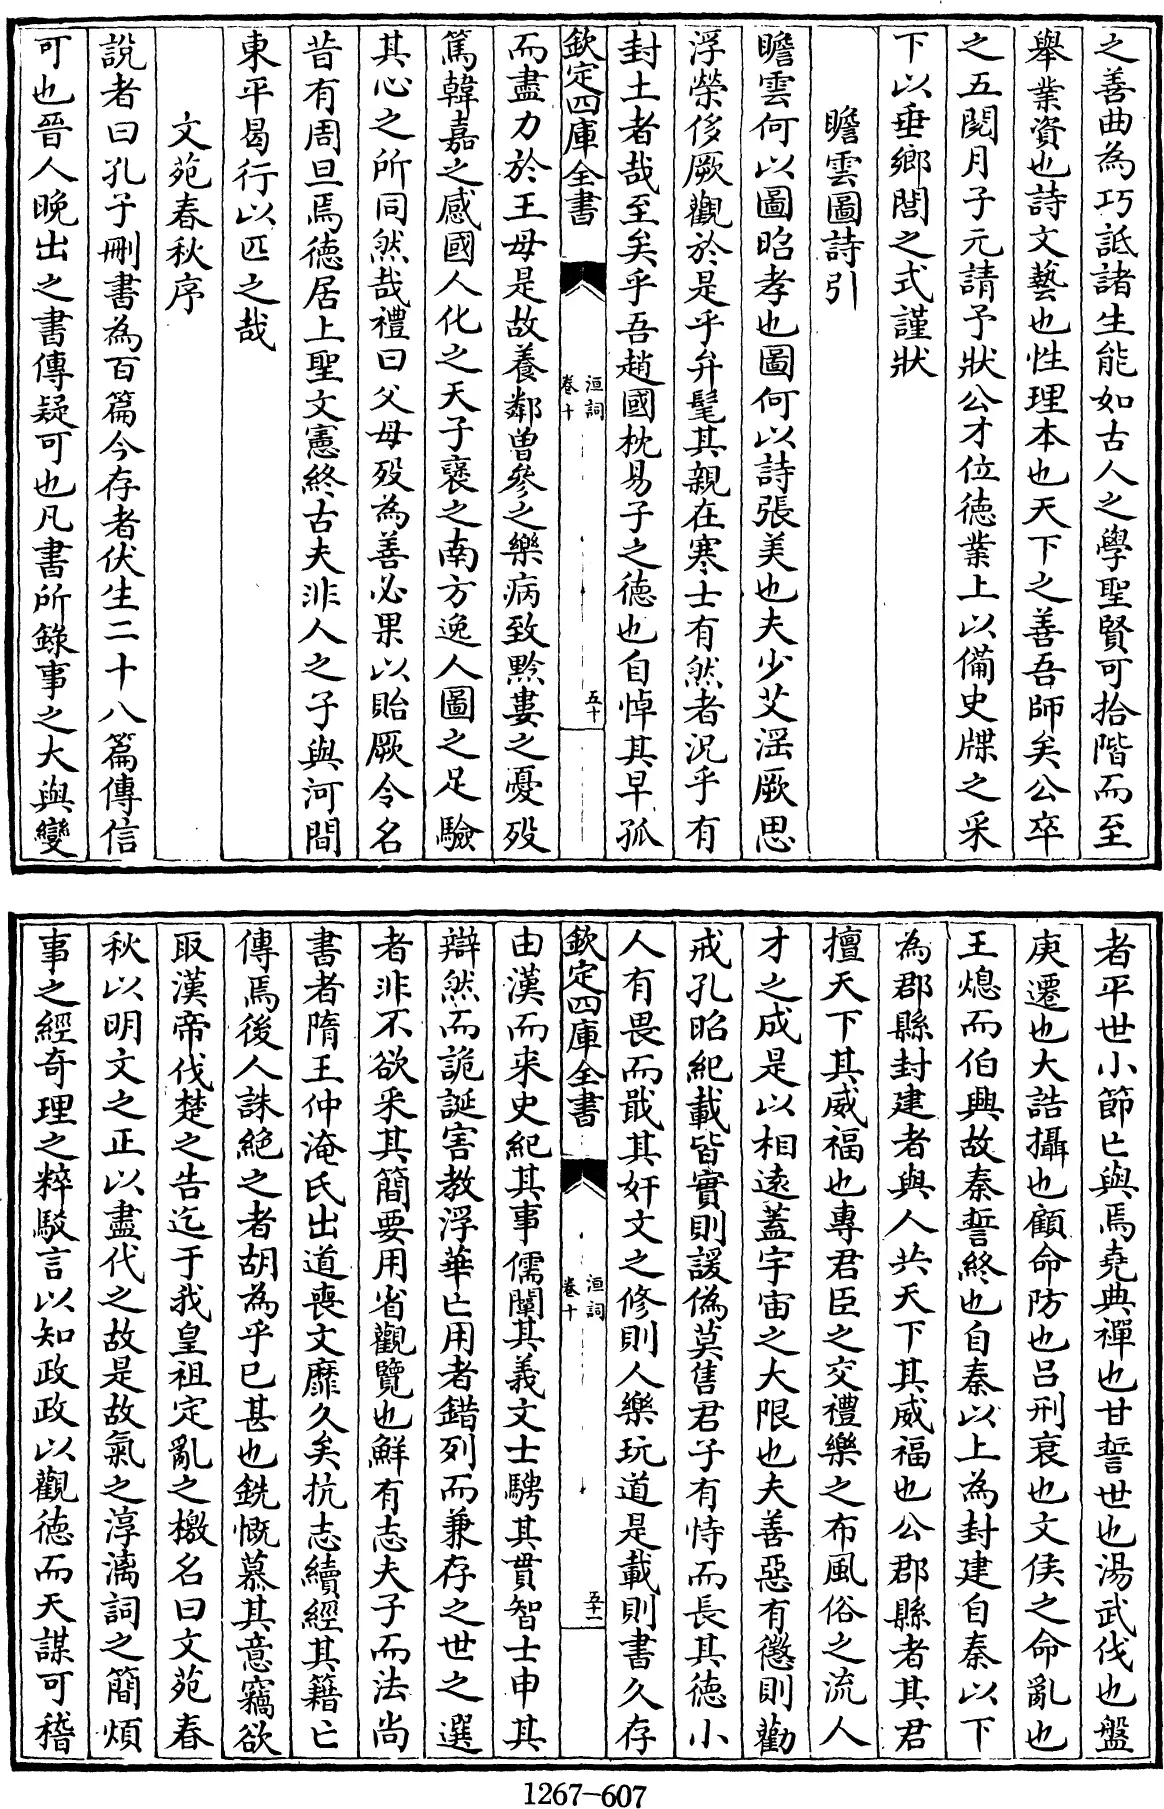 之善曲為巧詆諸生能如古人之學聖賢可拾階而至
舉業資也詩文藝也性理本也天下之善吾師矣公卒
之五閱月子元請予狀公才位徳業上以備史牒之采
下以垂鄉閭之式謹狀
瞻雲圖詩引
瞻雲何以圖昭孝也圖何以詩張美也夫少艾滛厥思
浮榮侈厥觀於是乎弁髦其親在寒士有然者況乎有
封土者哉至矣乎吾趙國枕易子之徳也自悼其早孤
欽定四庫全書
洹詞
卷十
五十
而盡力於王母是故養鄰曽參之樂病致黔婁之憂歿
篤韓嘉之感國人化之天子襃之南方逸人圖之足驗
其心之所同然哉禮曰父母歿為善必果以貽厥令名
昔有周旦焉徳居上聖文憲終古夫非人之子與河間
東平曷行以匹之哉
文苑春秋序
說者曰孔子刪書為百篇今存者伏生二十八篇傳信
可也晉人晚出之書傳疑可也凡書所錄事之大與變
者平世小節亡與焉堯典禪也甘誓世也湯武伐也盤
庚遷也大誥攝也顧命防也吕刑衰也文侯之命亂也
王熄而伯興故秦誓終也自秦以上為封建自秦以下
為郡縣封建者與人共天下其威福也公郡縣者其君
擅天下其威福也專君臣之交禮樂之布風俗之流人
才之成是以相逺蓋宇宙之大限也夫善惡有懲則勸
戒孔昭紀載皆實則諼偽莫售君子有恃而長其徳小
人有畏而戢其奸文之修則人樂玩道是載則書久存
欽定四庫全書
洹詞
卷十
五十一
由漢而来史紀其事儒闡其義文士騁其貫智士申其
辯然而詭誕害教浮華亡用者錯列而兼存之世之選
者非不欲采其簡要用省觀覽也鮮有志夫子而法尚
書者隋王仲淹氏出道喪文靡久矣抗志續經其籍亡
傳焉後人誅絶之者胡為乎已甚也銑慨慕其意竊欲
取漢帝伐楚之告迄于我皇祖定亂之檄名曰文苑春
秋以明文之正以盡代之故是故氣之淳漓詞之簡煩
事之經奇理之粹駁言以知政政以觀徳而天謀可稽
1267-607